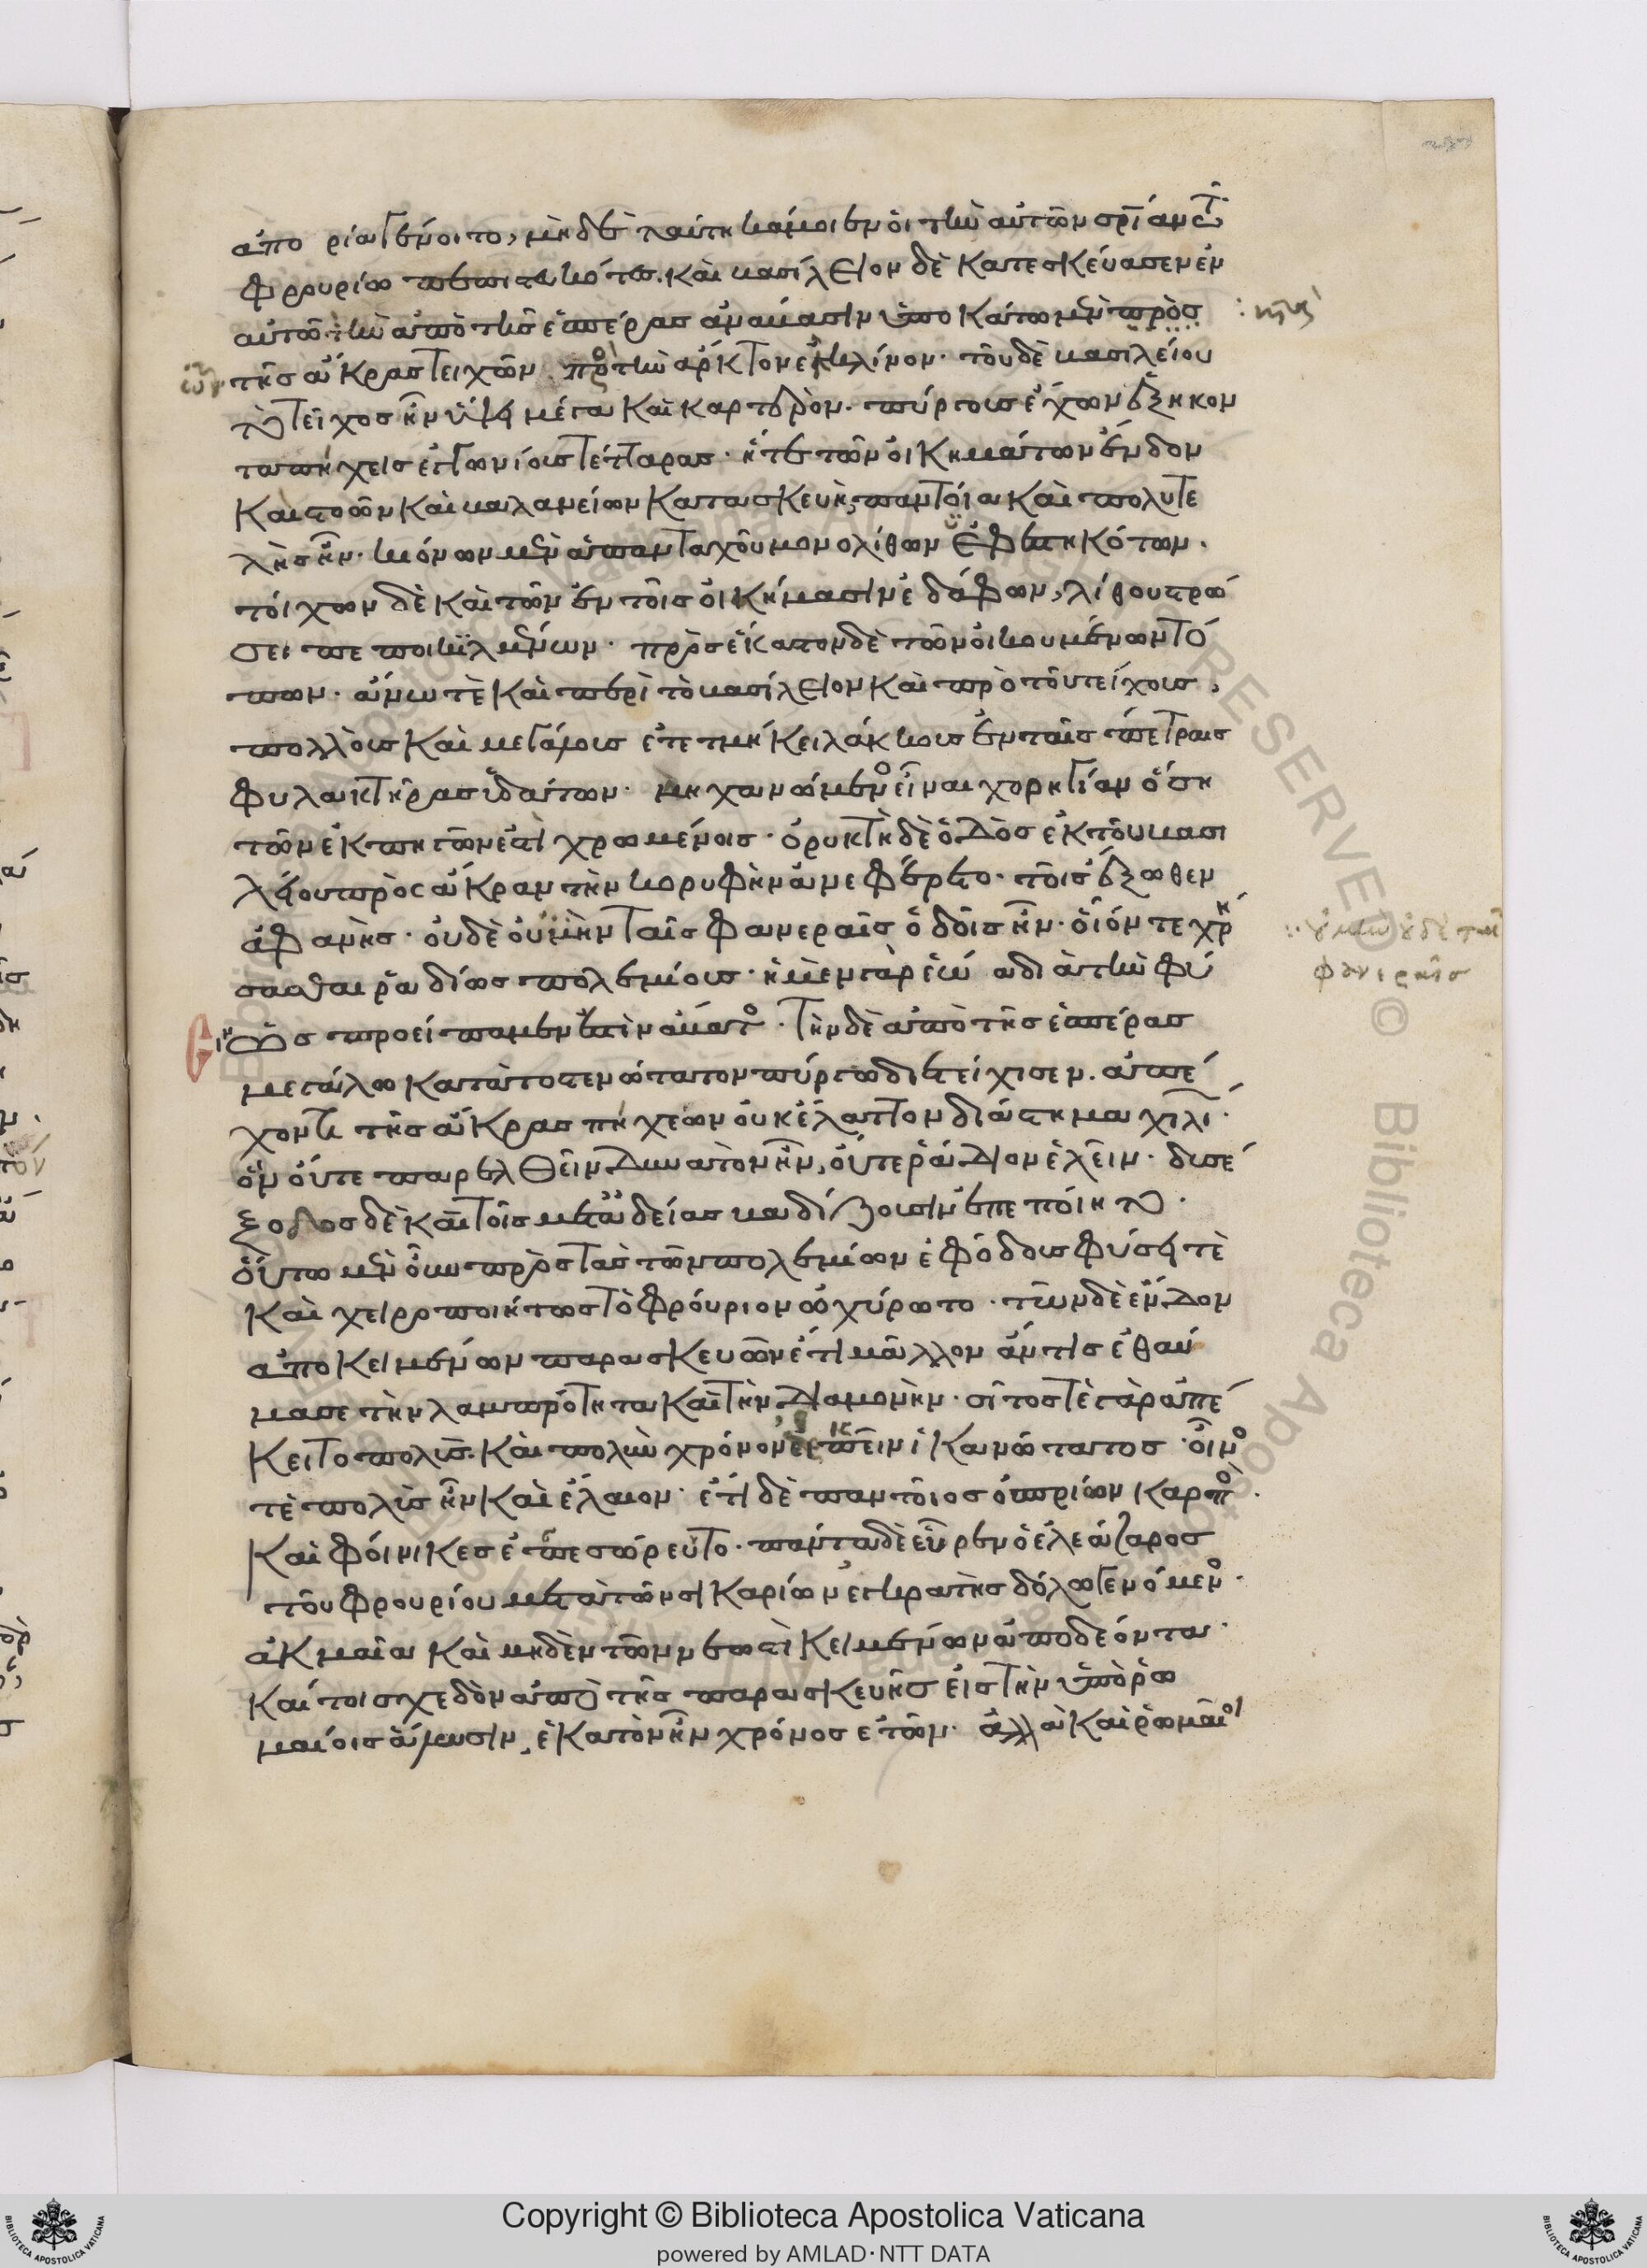 ἀπορία γένοιτο, μηδὲ ταύτη κάμοιεν οἱ τὴν αὐτῶν σρίαν τῶ
φρουρίω πεπιστευκότες. καὶ βασίλειον δὲ κατεσκεύασεν ἐν
αὐτῶ τὴν ἀπὸ τῆς ἑσπέρας ἀνάβασιν ὑποκάτω μὲν πρὸς
τῆς ἄκρας τειχῶν. πρὸς τὴν ἄρκτον ἐκκλίνον. τοῦ δὲ βασιλείου
τὸ τεῖχος ἦν ὕψει μέγα καὶ καρτερὸν. πύργους ἔχων ἑξηκον
ταπήχεις ἐγγωνίους τέτταρας. ἥ τε τῶν οἰκημάτων ἔνδον
καὶ στοῶν καὶ βαλανείων κατασκευὴ, παντοία καὶ πολυτε
λὴς ἦν. κιόνων μὲν ἁπανταχοῦ μονολίθων ὑφεστηκότων.
τοίχων δὲ καὶ τῶν ἐν τοῖς οἰκήμασιν ἐδάφων, λίθου στρώ
σει πεποικιλμένων. πρὸς ἕκαστον δὲ τῶν οἰκουμένων τό
πων. ἄνω τὲ καὶ περὶ τὸ βασίλειον καὶ πρὸ τοῦ τείχους,
πολλοὺς καὶ μεγάλους ἐτετμήκει λάκκους ἐν ταῖς πέτραις
φυλακτῆρας ὑδάτων. μηχανώμενος εἶναι χορηγίαν ὅση
τῶν ἐκ πηγῶν ἐστὶ χρωμένοις. ὀρυκτὴ δὲ ὁδὸς ἐκ τοῦ βασι
λείου πρὸς ἄκραν τὴν κορυφὴν ἀνεφέρετο. τοῖς ἔξωθεν
ἀφανής. οὐδὲ οὐ μὴν ταῖς φανεραῖς ὁδοῖς ἦν. οἷόν τε χρή
σασθαι ῥαδίως πολεμίους. ἡ μὲν γὰρ ἑώα διὰ τὴν φύ
σιν ὡς προείπαμεν ἐστὶν ἄβατος. τὴν δὲ ἀπὸ τῆς ἑσπέρας
μεγάλω κατὰ τὸ στενώτατον πύργω διετείχισεν. ἀπέ
χοντι τῆς ἄκρας πήχεων οὐκ ἔλαττον διάστημα χιλί.
ὃν οὔτε παρελθεῖν δυνατὸν ἦν, οὔτε ῥάδιον ἑλεῖν. δυσέ
ξοδος δὲ καὶ τοῖς μετὰ ἀδείας βαδίζουσιν ἐπεποίητο.
οὕτω μὲν οὖν πρὸς τὰς τῶν πολεμίων ἐφόδους φύσει τὲ
καὶ χειροποιήτως τὸ φρούριον ὠχύρωτο. τῶν δὲ ἔνδον
ἀποκειμένων παρασκευῶν ἔτι μᾶλλον ἄν τις ἐθαύ
μασε τὴν λαμπρότητα καὶ τὴν διαμονὴν. σῖτός τὲ γὰρ ἀπέ
κειτο πολὺς. καὶ πολὺν χρόνον ἀρκεῖν ἱκανώτατος. οἶνός
τὲ πολὺς ἦν καὶ ἔλαιον. ἔτι δὲ παντοῖος ὀσπρίων καρπὸς.
καὶ φοίνικες ἐσεσώρευτο. πάντα δὲ εὗρεν ὁ ἐλεάζαρος
τοῦ φρουρίου μετὰ τῶν σικαρίων ἐγκρατὴς δόλω γενόμενος.
ἀκμαῖα καὶ μηδὲν τῶν νεωστὶ κειμένων ἀποδέοντα.
καίτοι σχεδὸν ἀπὸ τῆς παρασκευῆς εἰς τὴν ὑπὸ ῥω
μαίοις ἅλωσιν, ἑκατὸν ἦν χρόνος ἐτῶν. ἀλλὰ καὶ ῥωμαῖοι
οὐ μὴν οὐδὲ ταῖ
φανεραῖς